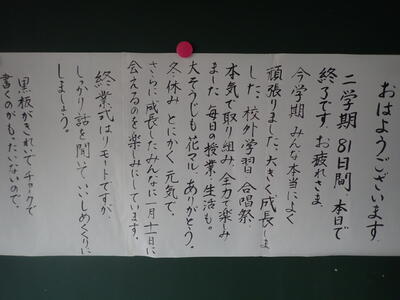 おはようございます
二学期 81日間 本日で
終了です。お疲れさま。
今学期 みんな本当によく
頑張りました。大きく成長しま
した。校外学習 合唱祭
本気で取り組み、全力で楽しみ
ました。毎日の授業・生活も。
大そうじも花マル。ありがとう。
冬休み とにかく 元気で、
さらに成長したみんなに一月十一日に
会えるのを楽しみにしています。
終業式はリモートですが、
しっかり話を聞いて、いいしめくくりに
しましょう。
黒板がきれいで、チョークで
書くのがもったいないので。